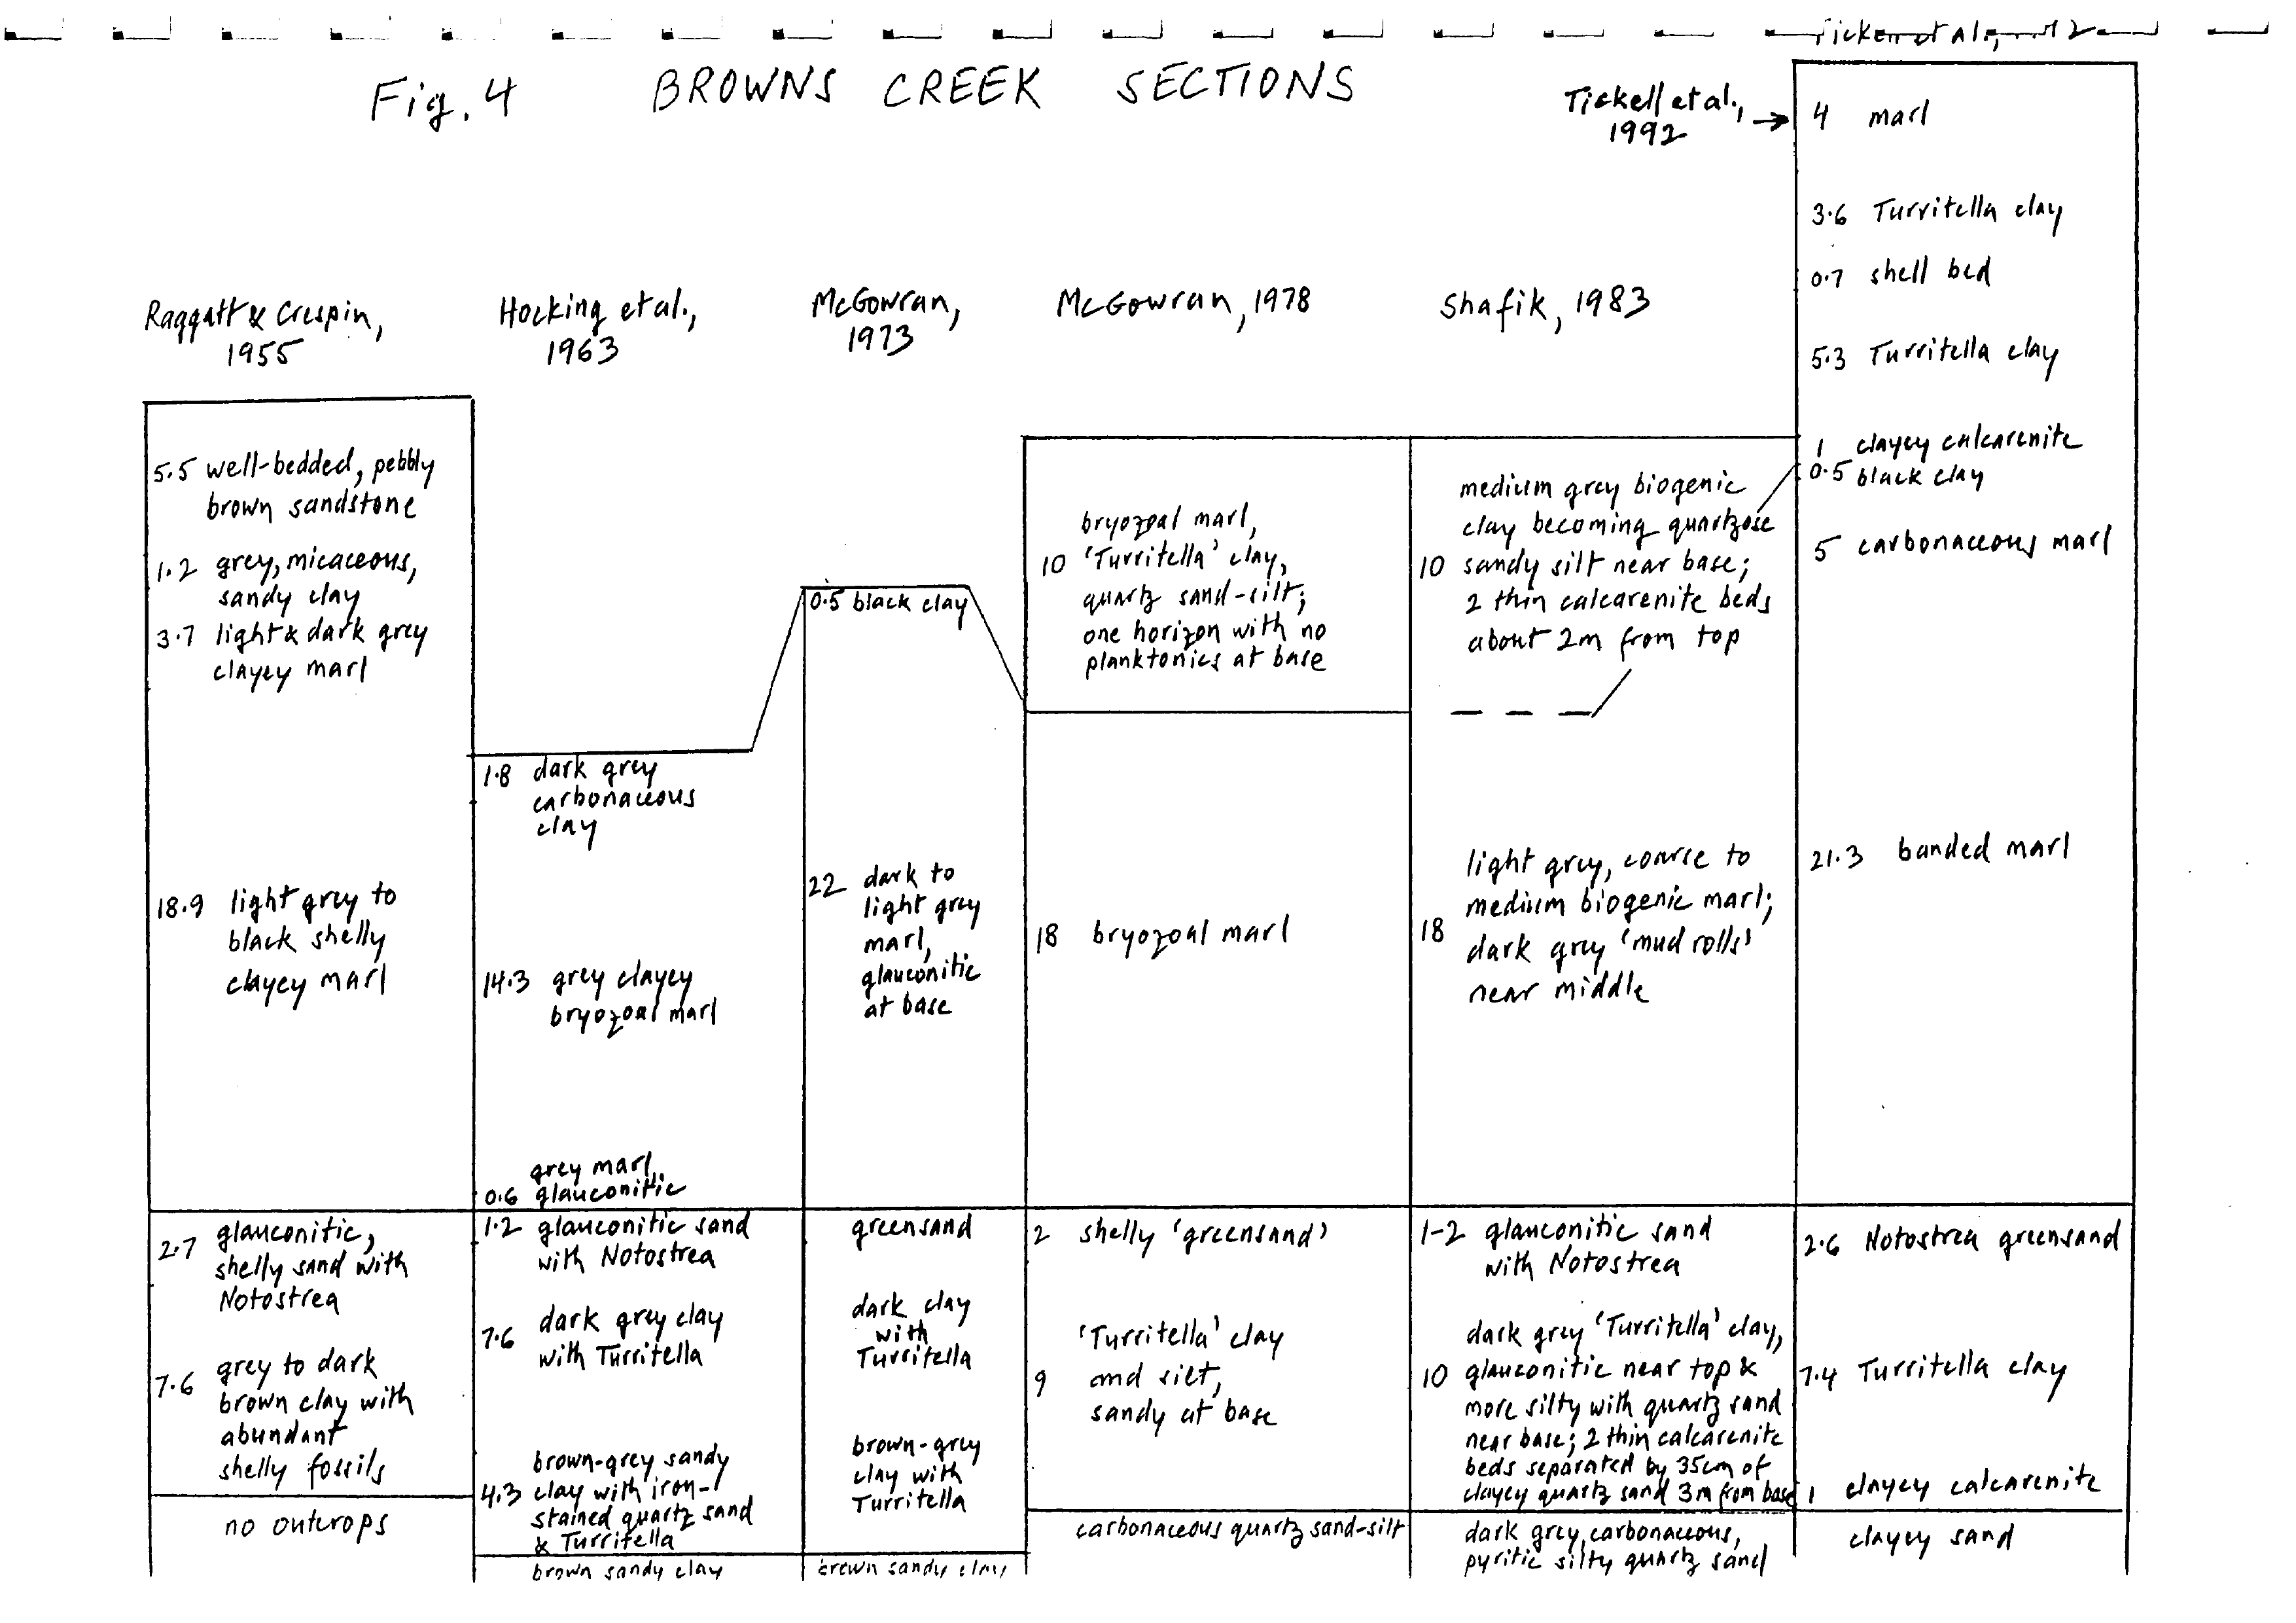 Fig. 4 BROWNS CREEK SECTIONS
Raggatt & Crespin,
1955
5.5 well-bedded, pebbly
brown sandstone
1.2 grey, micaceous,
sandy clay
3.7 light & dark grey
clayey marl
18.9 light grey to
black shelly
clayey marl
2.7 glauconitic,
shelly sand with
Notostrea
7.6 grey to dark
brown clay with
abundant
shelly fossils
no outcrops
Hocking et al.,
1963
1.8 dark grey
carbonaceous
clay
14.3 grey clayey
bryozoal marl
grey marl,
0.6 glauconitic
1.2 glauconitic sand
with Notostrea
7.6 dark grey clay
with Turritella
brown-grey sandy
4.3 clay with iron-
stained quartz sand
& Turritella
brown sandy clay
McGowran,
1973
0.5 black clay
22 dark to
light grey
marl,
glauconitic
at base
greensand
dark clay
with
Turritella
brown-grey
clay with
Turritella
brown sandy clay
McGowran, 1978
bryozoal marl,
10 'Turritella' clay,
quartz sand-silt;
one horizon with no
planktonics at base
18 bryozoal marl
2 shelly 'greensand'
'Turritella' clay
9 and silt,
sandy at base
carbonaceous quartz sand-silt
Shafik, 1983
medium grey biogenic
clay becoming quartzose
10 sandy silt near base;
2 thin calcarenite beds
about 2m from top
light grey, coarse to
medium biogenic marl;
18 dark grey 'mud rolls'
near middle
1-2 glauconitic sand
with Notostrea
dark grey 'Turritella' clay,
10 glauconitic near top &
more silty with quartz sand
near base; 2 thin calcarenite
beds separated by 35cm of
clayey quartz sand 3m from base
dark grey, carbonaceous,
pyritic silty quartz sand
Tickell et al.,
1992
4 marl
3.6 Turritella clay
0.7 shell bed
5.3 Turritella clay
1 clayey calcarenite
0.5 black clay
5 carbonaceous marl
21.3 banded marl
2.6 Notostrea greensand
7.4 Turritella clay
1 clayey calcarenite
clayey sand